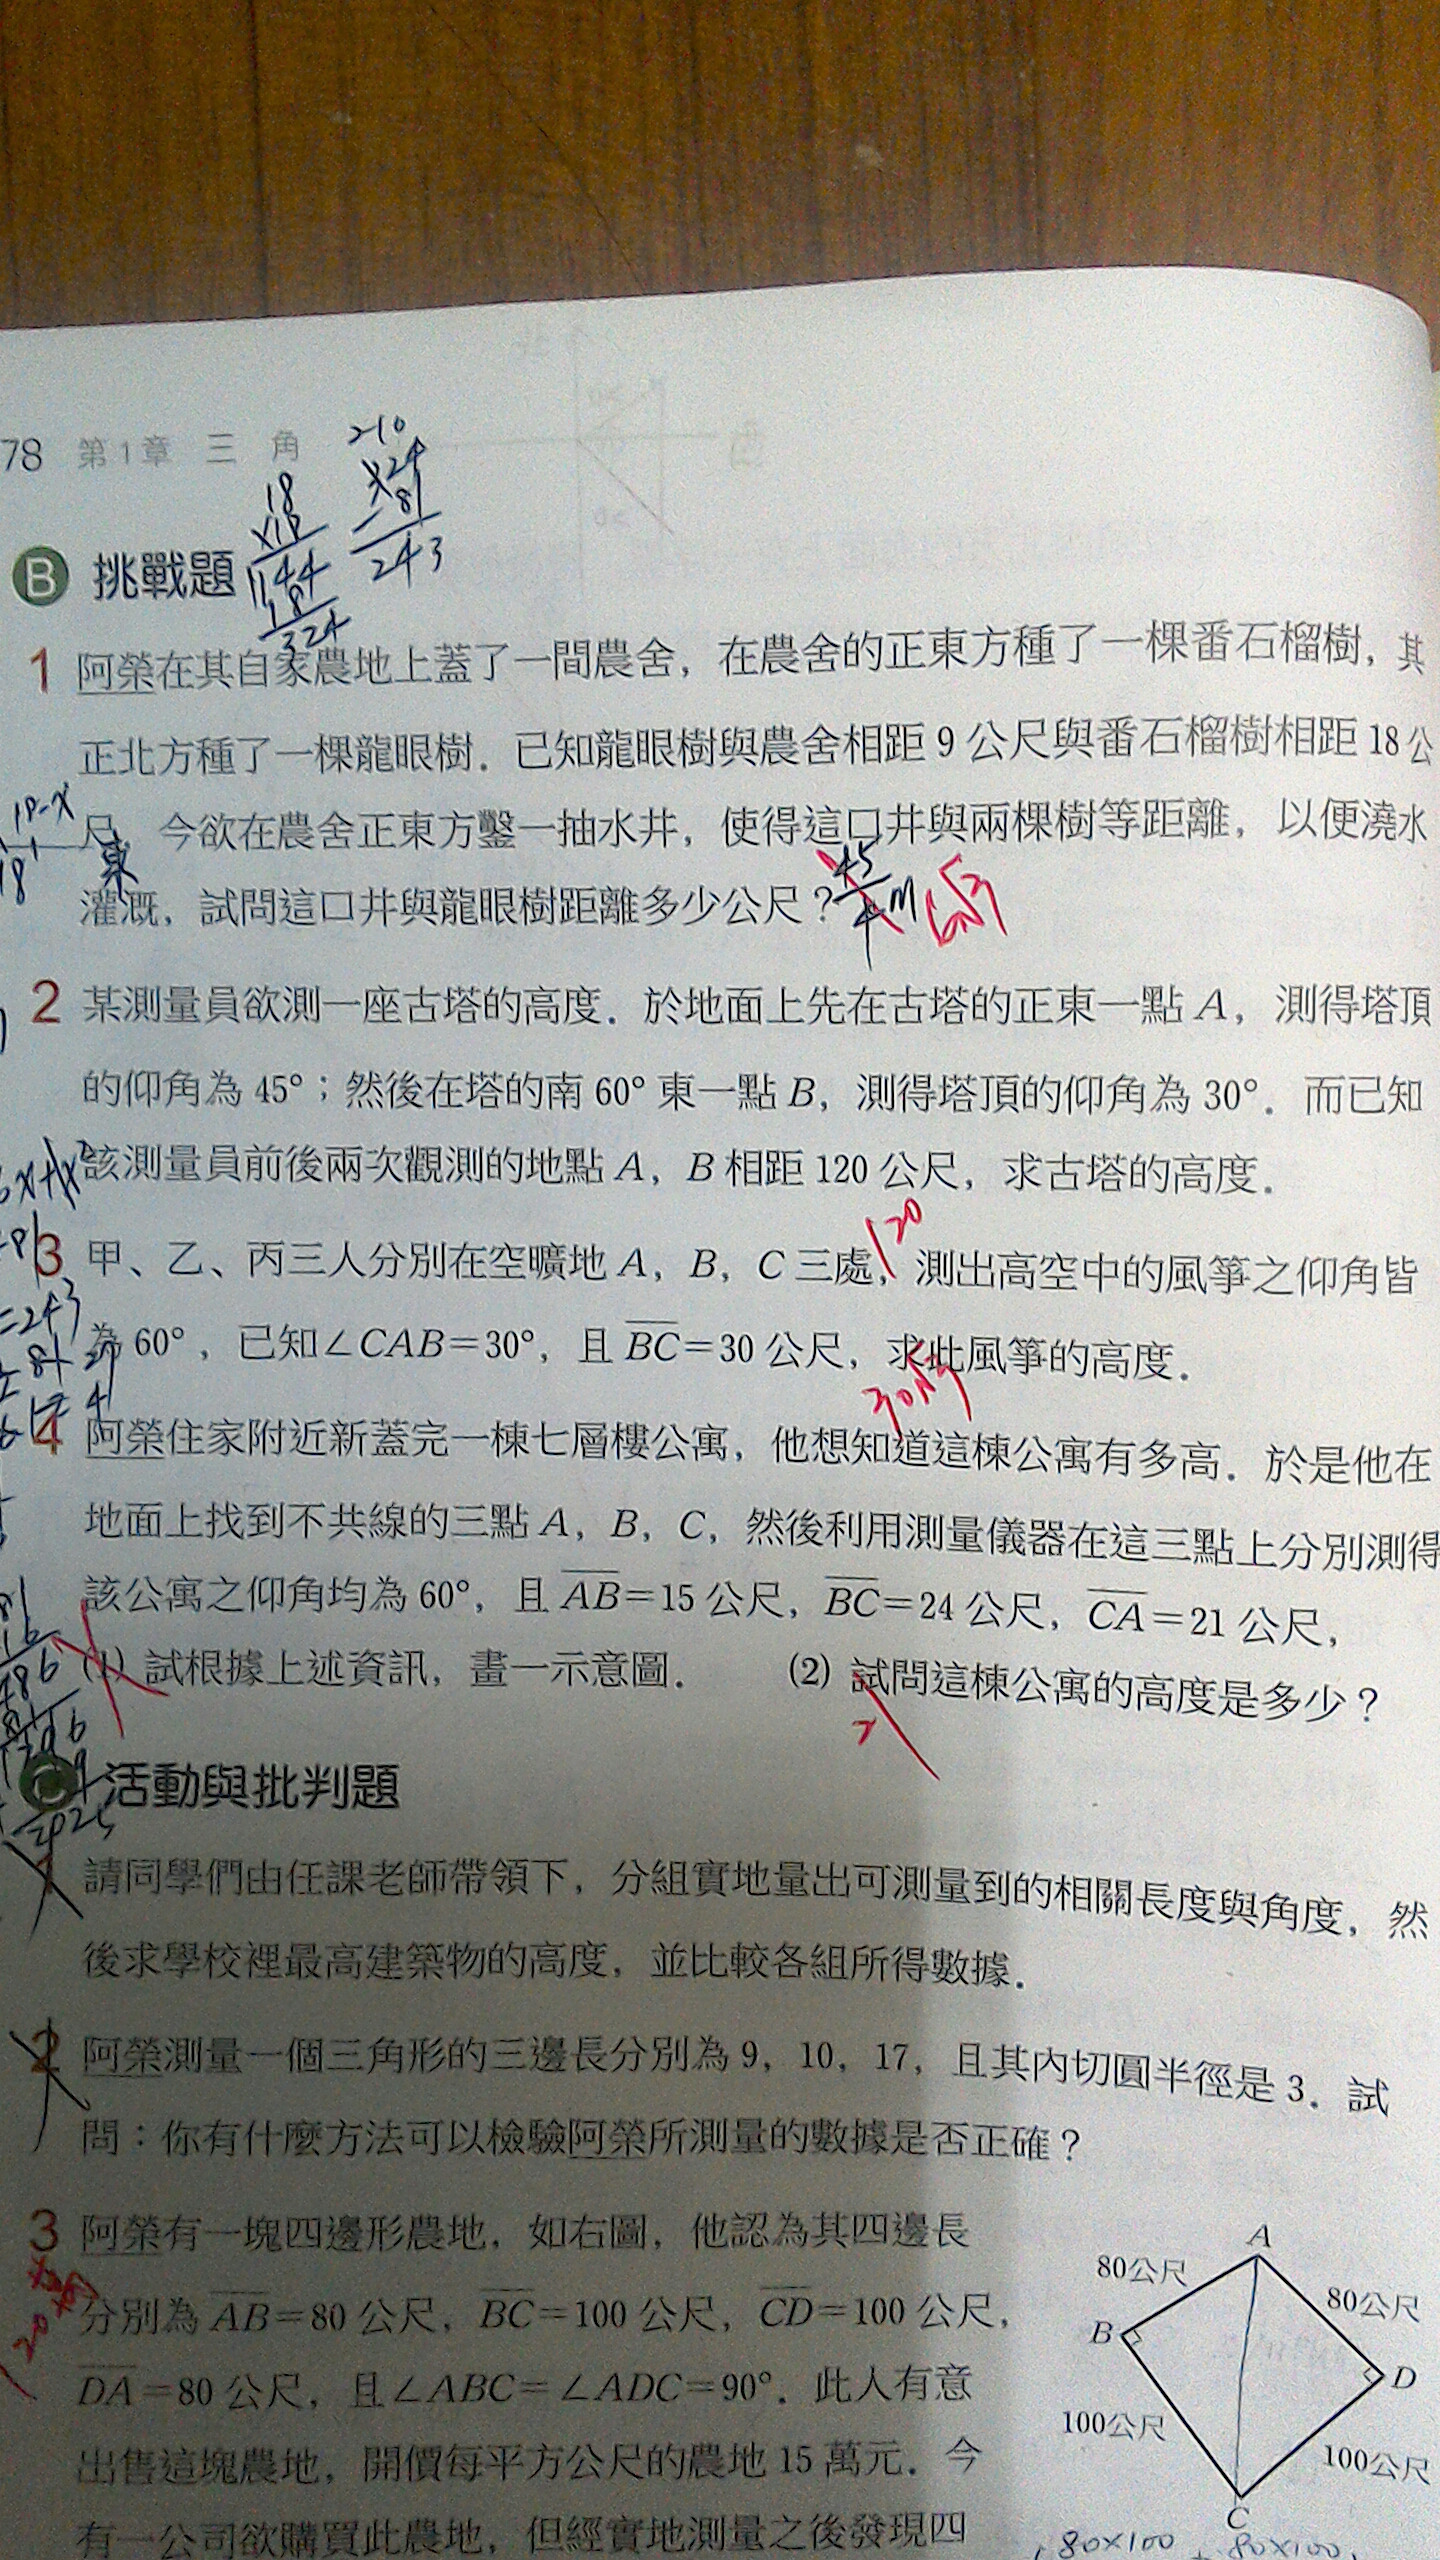 78 第1章 三 角
210
18
×18
144
18
324
×24
81
243
B 挑戰題
1 阿榮在其自家農地上蓋了一間農舍，在農舍的正東方種了一棵番石榴樹，其
正北方種了一棵龍眼樹．已知龍眼樹與農舍相距 9 公尺與番石榴樹相距 18 公
18-x
尺．今欲在農舍正東方鑿一抽水井，使得這口井與兩棵樹等距離，以便澆水
18 東
灌溉，試問這口井與龍眼樹距離多少公尺？ 45/4 m 6√3
2 某測量員欲測一座古塔的高度．於地面上先在古塔的正東一點 A，測得塔頂
的仰角為 45°；然後在塔的南 60° 東一點 B，測得塔頂的仰角為 30°．而已知
該測量員前後兩次觀測的地點 A，B 相距 120 公尺，求古塔的高度．
120
3 甲、乙、丙三人分別在空曠地 A，B，C 三處，測出高空中的風箏之仰角皆
=243
為 60°，已知∠CAB=30°，且 BC=30 公尺，求此風箏的高度．
30√3
4 阿榮住家附近新蓋完一棟七層樓公寓，他想知道這棟公寓有多高．於是他在
地面上找到不共線的三點 A，B，C，然後利用測量儀器在這三點上分別測得
該公寓之仰角均為 60°，且 AB=15 公尺，BC=24 公尺，CA=21 公尺，
(1) 試根據上述資訊，畫一示意圖． (2) 試問這棟公寓的高度是多少？
C 活動與批判題
1 請同學們由任課老師帶領下，分組實地量出可測量到的相關長度與角度，然
後求學校裡最高建築物的高度，並比較各組所得數據．
2 阿榮測量一個三角形的三邊長分別為 9，10，17，且其內切圓半徑是 3．試
問：你有什麼方法可以檢驗阿榮所測量的數據是否正確？
3 阿榮有一塊四邊形農地，如右圖，他認為其四邊長
分別為 AB=80 公尺，BC=100 公尺，CD=100 公尺，
DA=80 公尺，且∠ABC=∠ADC=90°．此人有意
出售這塊農地，開價每平方公尺的農地 15 萬元．今
有一公司欲購買此農地，但經實地測量之後發現四
A
80公尺
80公尺
B
D
100公尺
100公尺
C
80×100 + 80×100